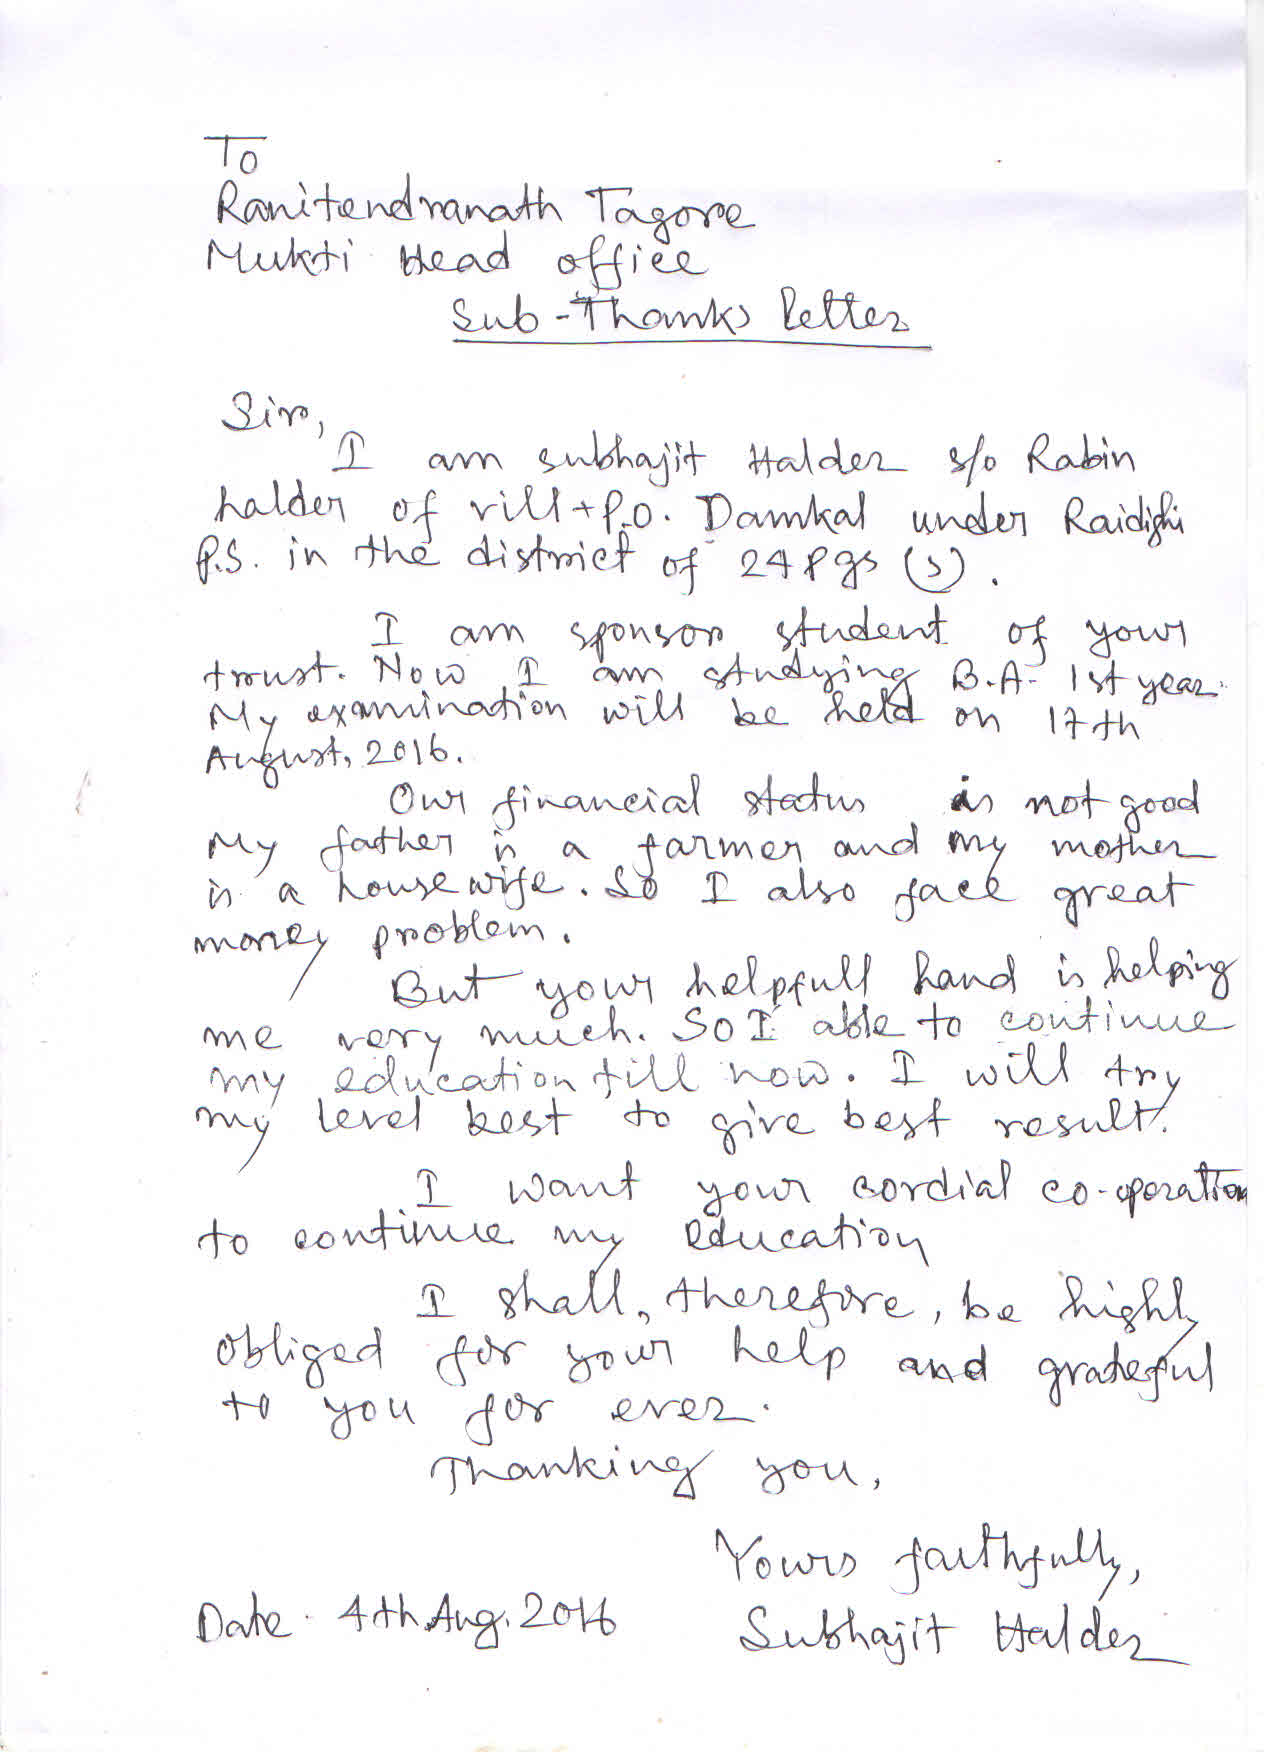 To
Ranitendranath Tagore
Mukti Head office
Sub - Thanks letter
Sir,
I am subhajit Halder s/o Rabin
halder of vill + P.O. Damkal under Raidighi
P.S. in the district of 24 Pgs (s).
I am sponsor student of your
trust. Now I am studying B.A. 1st year.
My examination will be held on 17th
August, 2016.
Our financial status is not good
My father is a farmer and my mother
is a house wife. So I also face great
money problem.
But your helpfull hand is helping
me very much. So I able to continue
my education till now. I will try
my level best to give best result.
I want your cordial co-operation
to continue my education
I shall, therefore, be highly
obliged for your help and grateful
to you for ever.
Thanking you,
Yours faithfully,
Date 4th Aug. 2016 Subhajit Halder